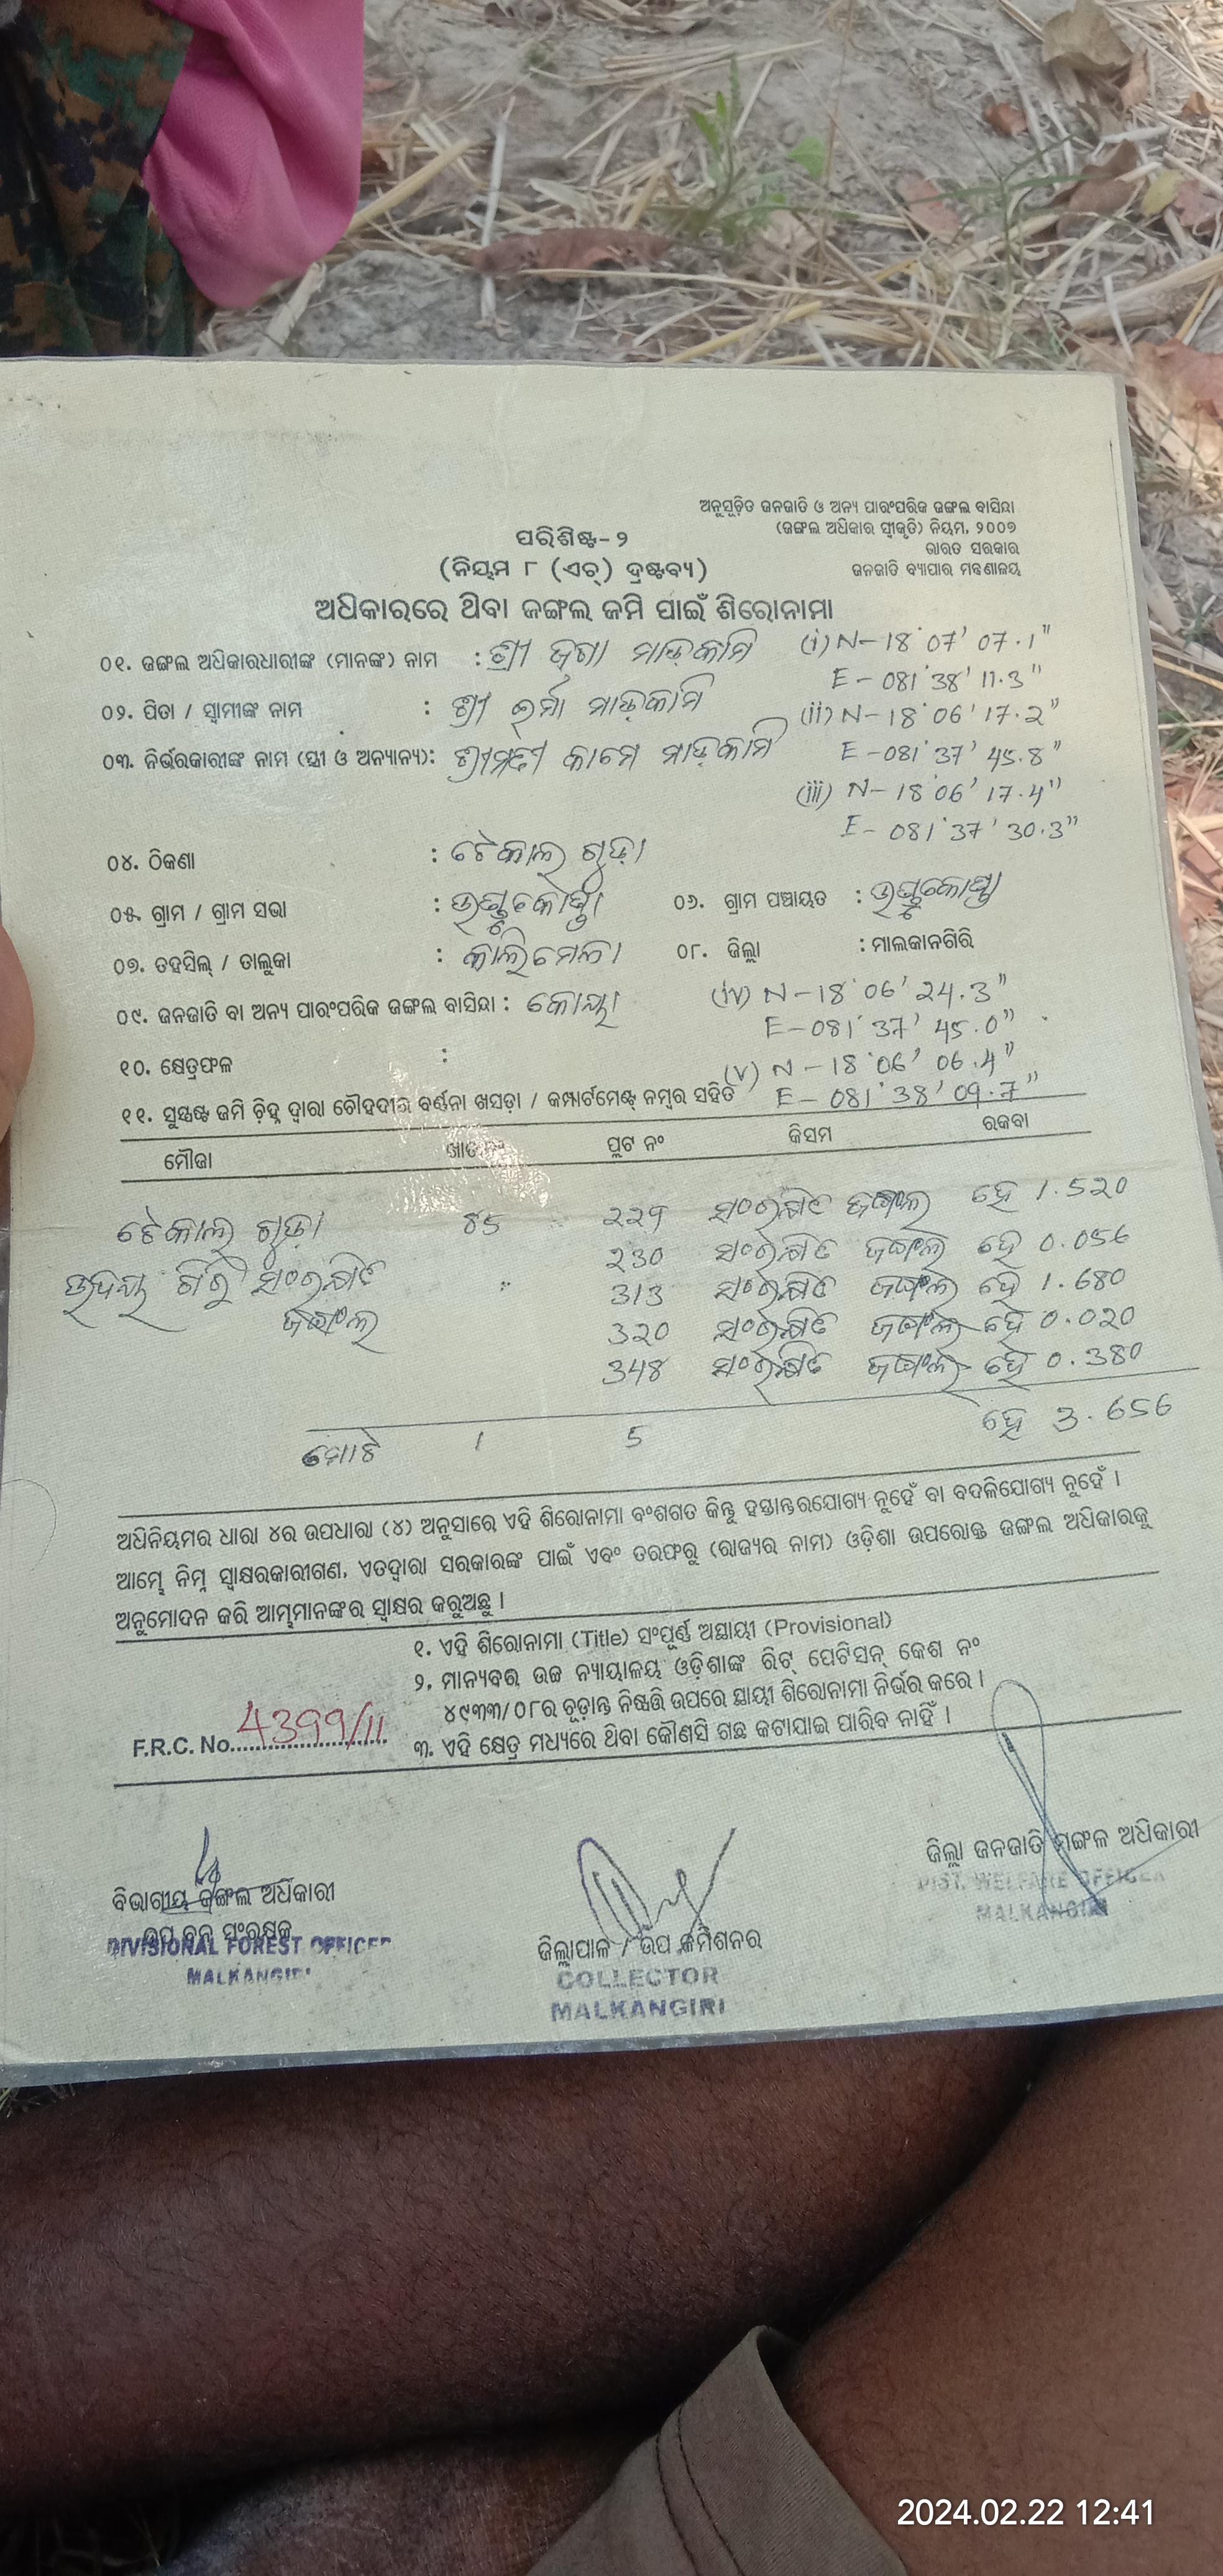 ଅନୁସୂଚିତ ଜନଜାତି ଓ ଅନ୍ୟ ପାରଂପରିକ ଜଙ୍ଗଲ ବାସିନ୍ଦା
(ଜଙ୍ଗଲ ଅଧିକାର ସ୍ଵୀକୃତି) ନିୟମ, ୨୦୦୭
ଭାରତ ସରକାର
ଜନଜାତି ବ୍ୟାପାର ମନ୍ତ୍ରଣାଳୟ
ପରିଶିଷ୍ଟ-୨
(ନିୟମ ୮ (ଏଚ୍) ଦ୍ରଷ୍ଟବ୍ୟ)
ଅଧିକାରରେ ଥିବା ଜଙ୍ଗଲ ଜମି ପାଇଁ ଶିରୋନାମା
୦୧. ଜଙ୍ଗଲ ଅଧିକାରଧାରୀଙ୍କ (ମାନଙ୍କ) ନାମ : ଶ୍ରୀ ଜଗା ମାଡ଼କାମି
(i) N-18°07'07.1"
E-081°38'11.3"
୦୨. ପିତା / ସ୍ଵାମୀଙ୍କ ନାମ : ଶ୍ରୀ ଇର୍ମା ମାଡ଼କାମି
(ii) N-18°06'17.2"
E-081°37'45.8"
୦୩. ନିର୍ଭରକାରୀଙ୍କ ନାମ (ସ୍ତ୍ରୀ ଓ ଅନ୍ୟାନ୍ୟ): ଶ୍ରୀମତୀ କାମେ ମାଡ଼କାମି
(iii) N-18°06'17.4"
E-081°37'30.3"
୦୪. ଠିକଣା : ଟେକାଲ ଗୁଡ଼ା
୦୫. ଗ୍ରାମ / ଗ୍ରାମ ସଭା :
୦୬. ଗ୍ରାମ ପଞ୍ଚାୟତ :
୦୭. ତହସିଲ୍ / ତାଲୁକା : କାଲିମେଳା
୦୮. ଜିଲ୍ଲା : ମାଲକାନଗିରି
୦୯. ଜନଜାତି ବା ଅନ୍ୟ ପାରଂପରିକ ଜଙ୍ଗଲ ବାସିନ୍ଦା : କୋୟା
(iv) N-18°06'24.3"
E-081°37'45.0"
୧୦. କ୍ଷେତ୍ରଫଳ :
(v) N-18°06'06.4"
E-081°38'09.7"
୧୧. ସୁସ୍ପଷ୍ଟ ଜମି ଚିହ୍ନ ଦ୍ଵାରା ଚୌହଦୀର ବର୍ଣ୍ଣନା ଖସଡ଼ା / କମ୍ପାର୍ଟମେଣ୍ଟ୍ ନମ୍ବର ସହିତ
ମୌଜା ଖାତା ନଂ ପ୍ଲଟ ନଂ କିସମ ରକବା
ଟେକାଲ ଗୁଡ଼ା 85 229 ସଂରକ୍ଷିତ ଜଙ୍ଗଲ ହେ 1.520
ଉଦୟ ଗିରି ସଂରକ୍ଷିତ 230 ସଂରକ୍ଷିତ ଜଙ୍ଗଲ ହେ 0.056
ଜଙ୍ଗଲ 313 ସଂରକ୍ଷିତ ଜଙ୍ଗଲ ହେ 1.680
320 ସଂରକ୍ଷିତ ଜଙ୍ଗଲ ହେ 0.020
348 ସଂରକ୍ଷିତ ଜଙ୍ଗଲ ହେ 0.380
ମୋଟ 1 5 ହେ 3.656
ଅଧିନିୟମର ଧାରା ୪ର ଉପଧାରା (୪) ଅନୁସାରେ ଏହି ଶିରୋନାମା ବଂଶଗତ କିନ୍ତୁ ହସ୍ତାନ୍ତରଯୋଗ୍ୟ ନୁହେଁ ବା ବଦଳିଯୋଗ୍ୟ ନୁହେଁ ।
ଆମ୍ଭେ ନିମ୍ନ ସ୍ଵାକ୍ଷରକାରୀଗଣ, ଏତଦ୍ୱାରା ସରକାରଙ୍କ ପାଇଁ ଏବଂ ତରଫରୁ (ରାଜ୍ୟର ନାମ) ଓଡ଼ିଶା ଉପରୋକ୍ତ ଜଙ୍ଗଲ ଅଧିକାରକୁ
ଅନୁମୋଦନ କରି ଆମ୍ଭମାନଙ୍କର ସ୍ଵାକ୍ଷର କରୁଅଛୁ ।
୧. ଏହି ଶିରୋନାମା (Title) ସଂପୂର୍ଣ୍ଣ ଅସ୍ଥାୟୀ (Provisional)
୨. ମାନ୍ୟବର ଉଚ୍ଚ ନ୍ୟାୟାଳୟ ଓଡ଼ିଶାଙ୍କ ରିଟ୍ ପେଟିସନ୍ କେଶ ନଂ
୪୯୩୩/୦୮ର ଚୂଡ଼ାନ୍ତ ନିଷ୍ପତ୍ତି ଉପରେ ସ୍ଥାୟୀ ଶିରୋନାମା ନିର୍ଭର କରେ ।
୩. ଏହି କ୍ଷେତ୍ର ମଧ୍ୟରେ ଥିବା କୌଣସି ଗଛ କଟାଯାଇ ପାରିବ ନାହିଁ ।
F.R.C. No. 4399/11
ବିଭାଗୀୟ ଜଙ୍ଗଲ ଅଧିକାରୀ
ଉପ ବନ ସଂରକ୍ଷକ
DIVISIONAL FOREST OFFICER
MALKANGIRI
ଜିଲ୍ଲାପାଳ / ଉପ କମିଶନର
COLLECTOR
MALKANGIRI
ଜିଲ୍ଲା ଜନଜାତି ମଙ୍ଗଳ ଅଧିକାରୀ
DIST. WELFARE OFFICER
MALKANGIRI
2024.02.22 12:41